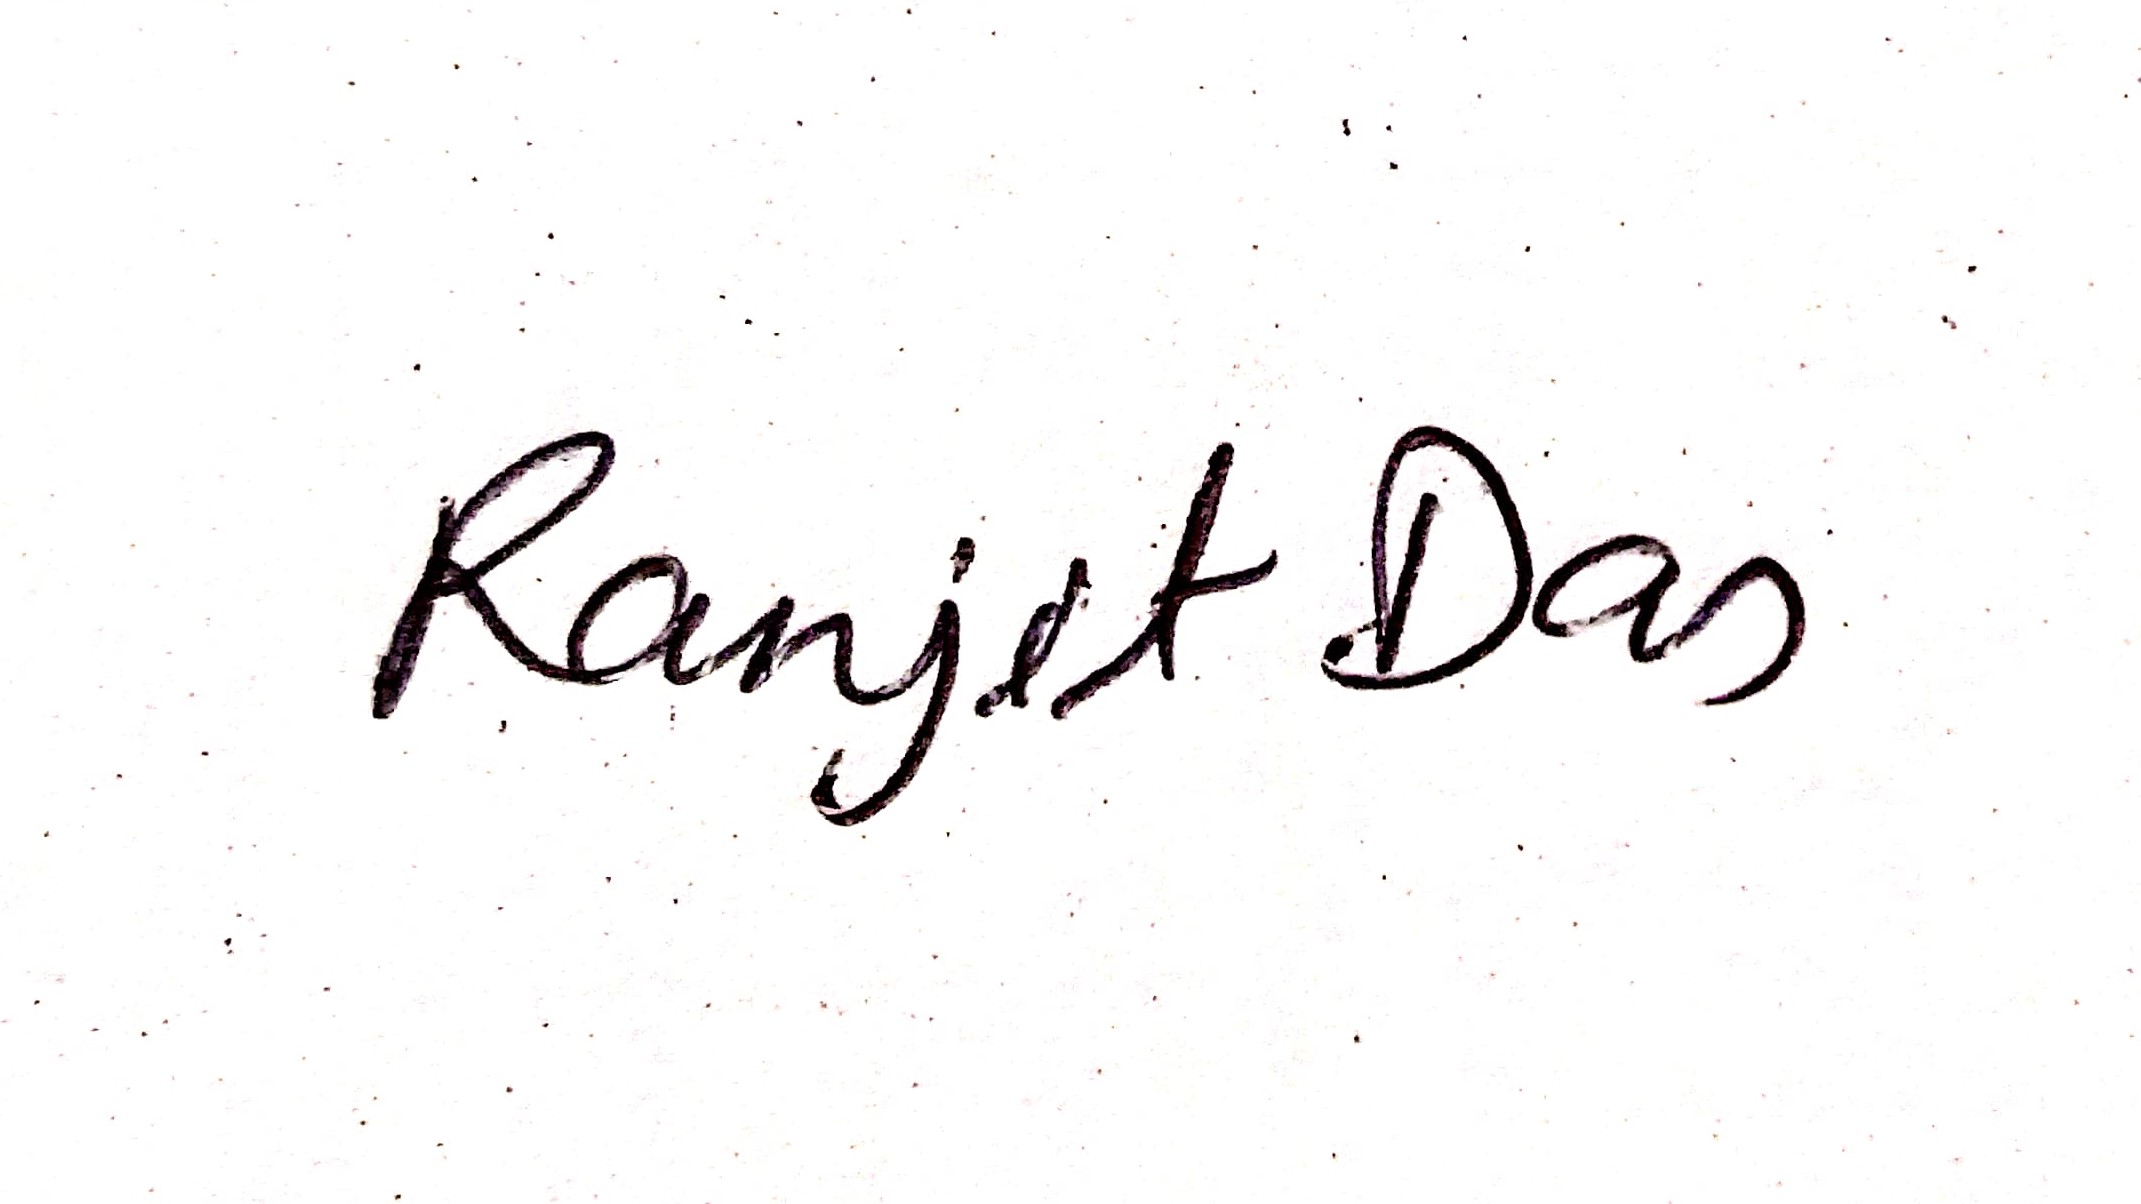 Ranjit Das